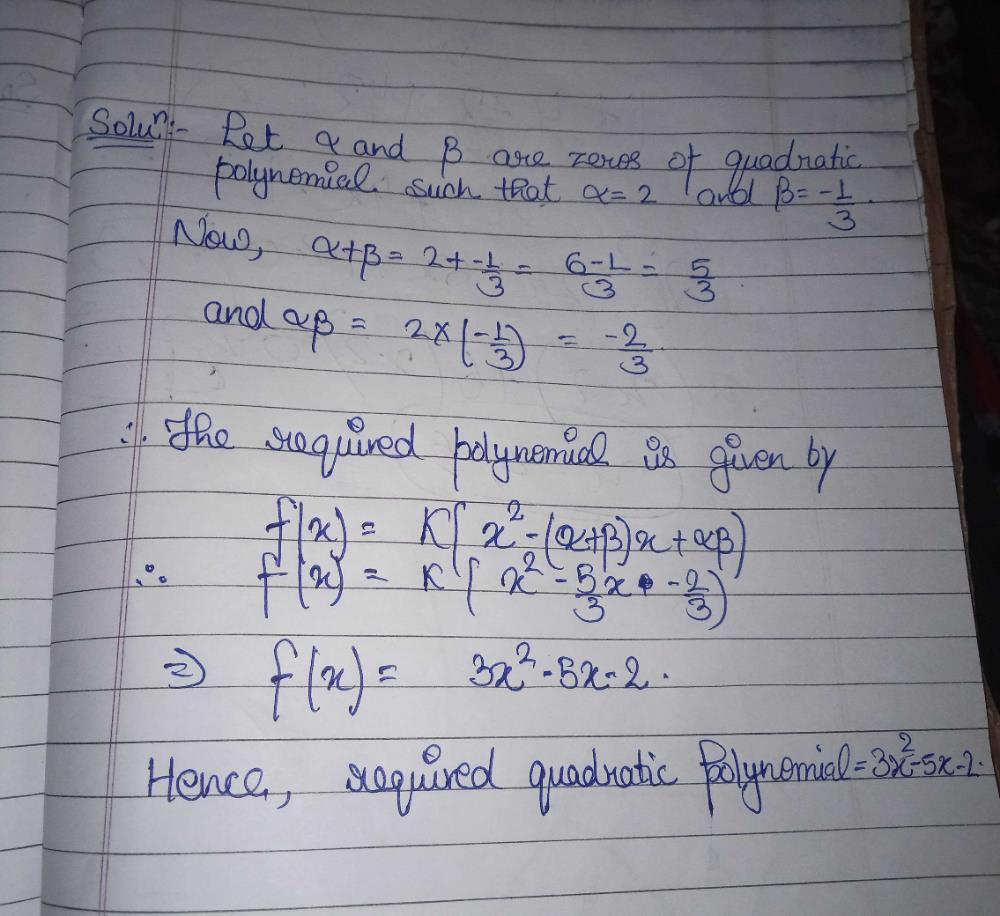 Soluⁿ:- Let α and β are zeros of quadratic
polynomial such that α = 2 and β = -1/3.
Now, α+β = 2 + -1/3 = 6-1/3 = 5/3
and αβ = 2×(-1/3) = -2/3.
∴ The required polynomial is given by
f(x) = K(x² - (α+β)x + αβ)
∴ f(x) = K(x² - 5/3x - 2/3)
⇒ f(x) = 3x² - 5x - 2.
Hence, required quadratic Polynomial = 3x² - 5x - 2.